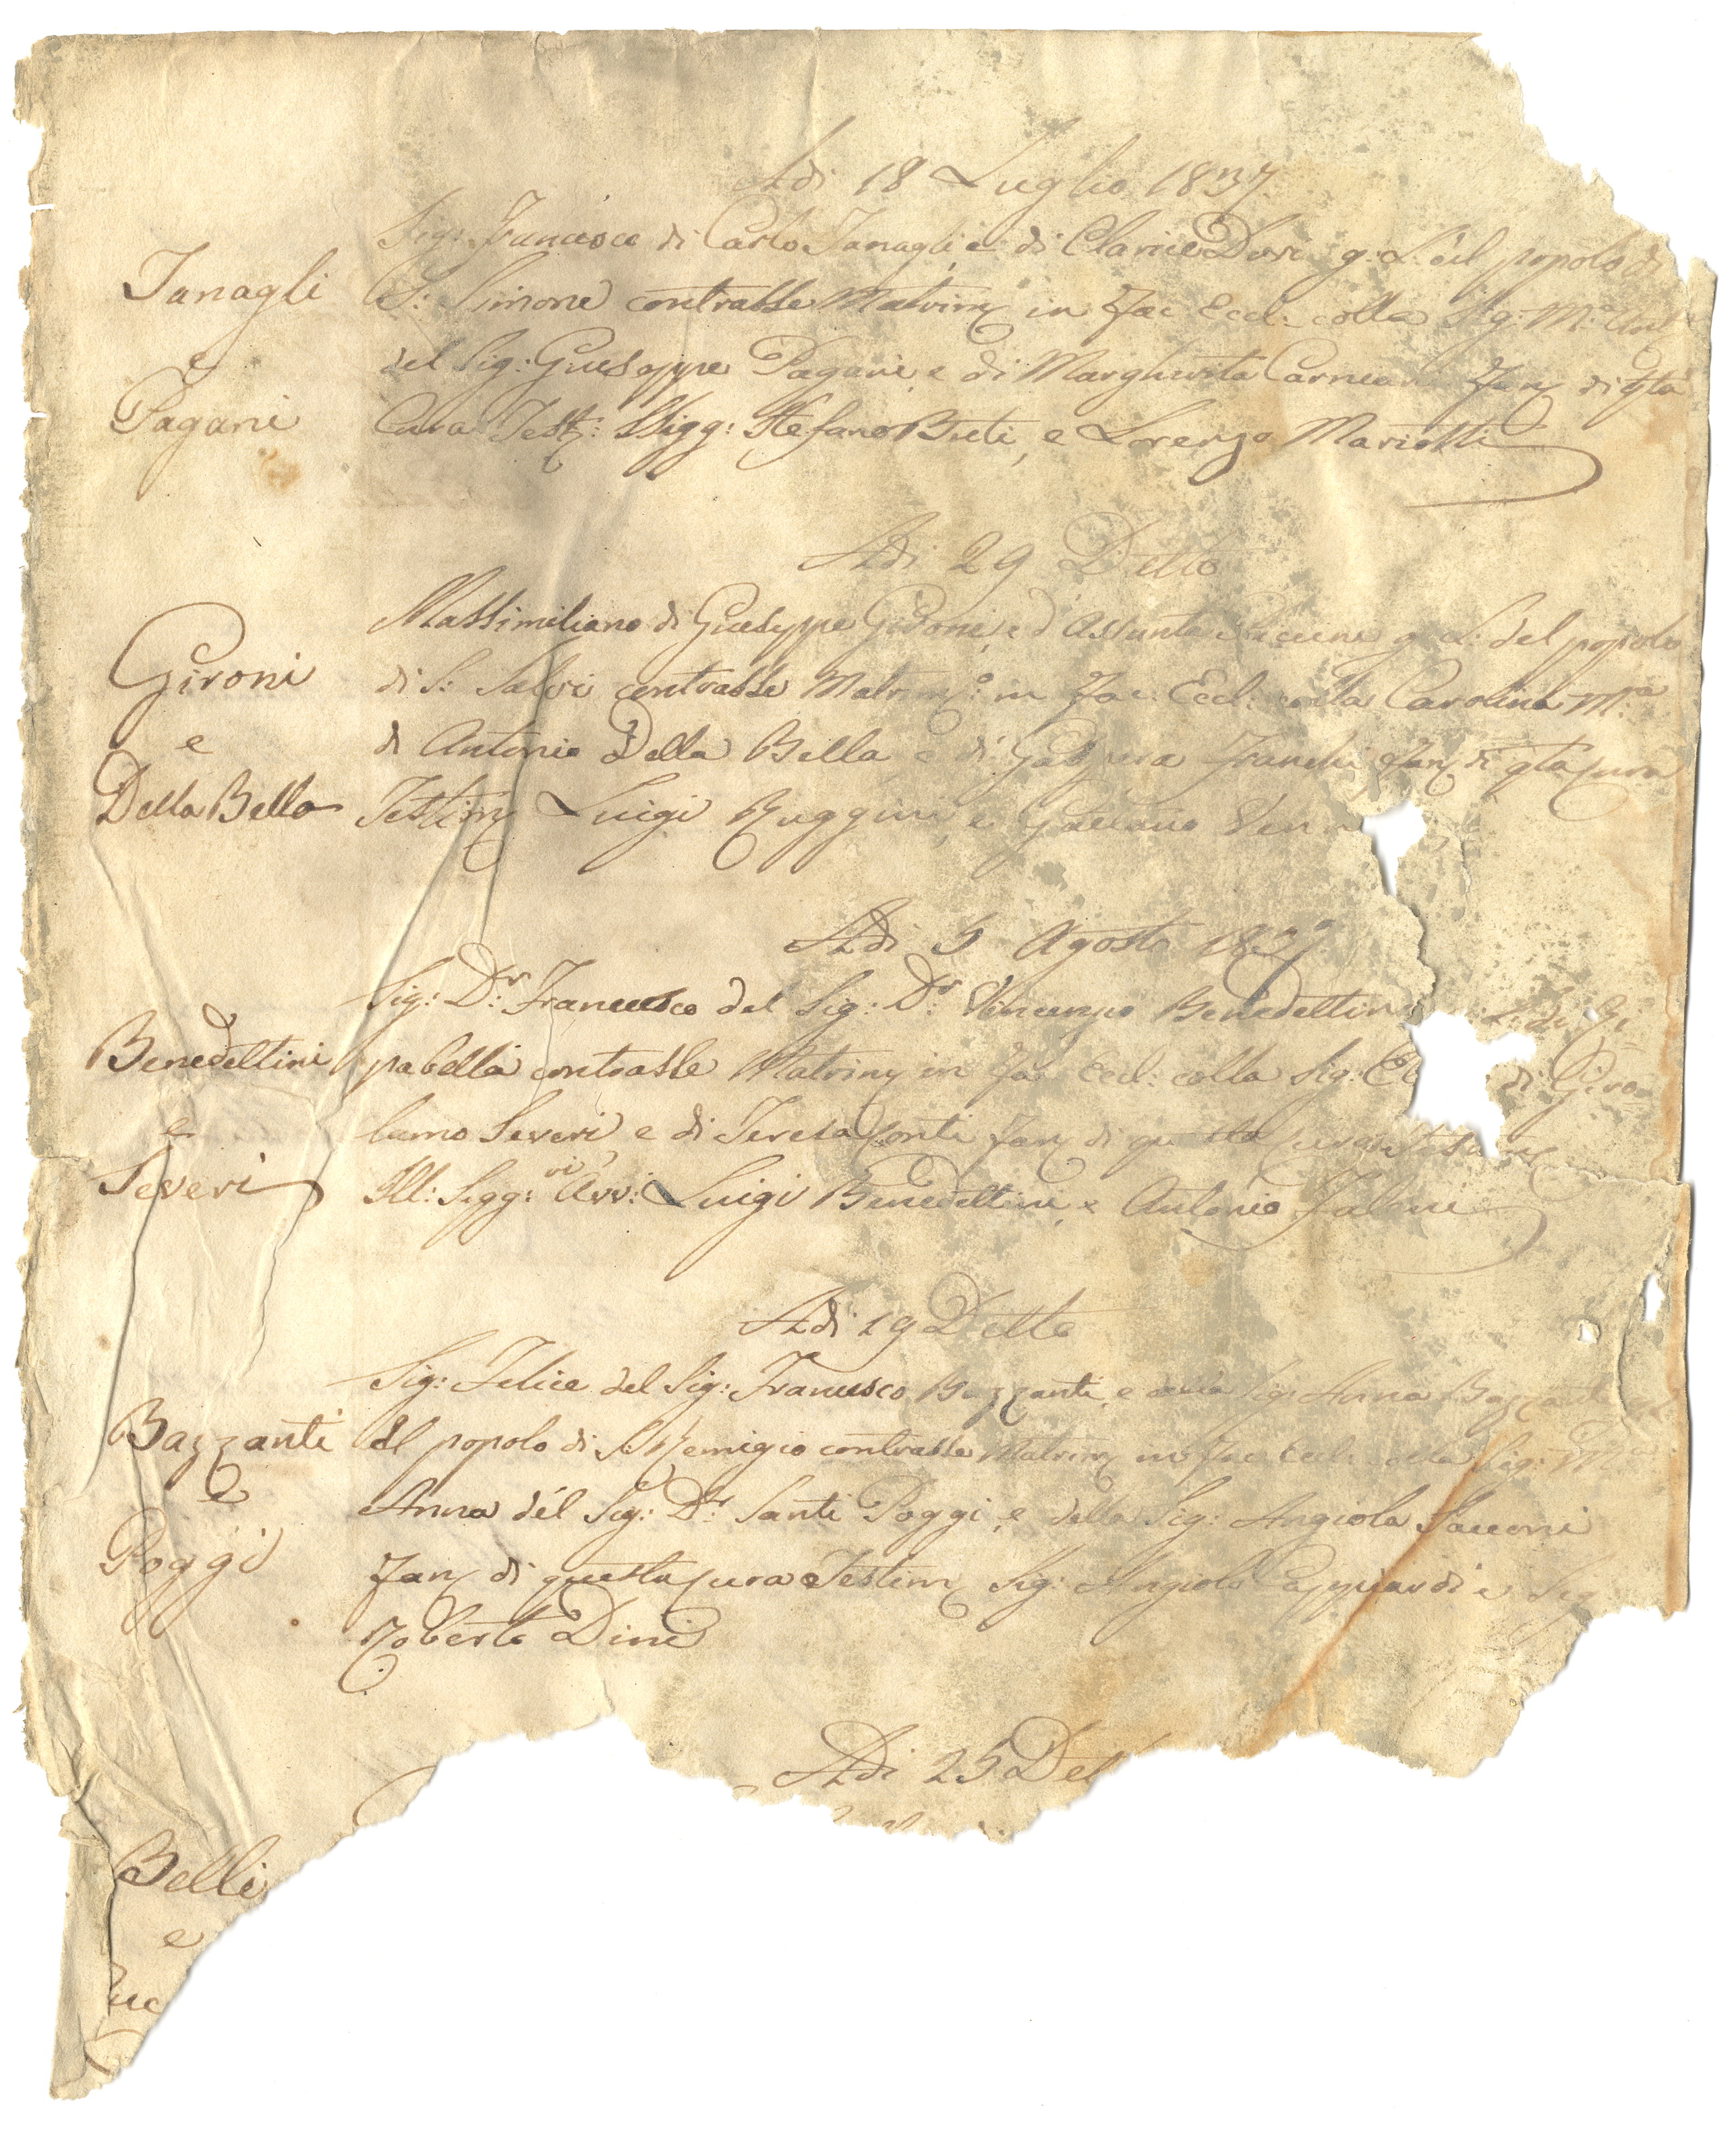 Adi 18 Luglio 1837
Sig: Francesco di Carlo Tanagli, e di Clarice Dori g: L: del popolo di
Tanagli
S: Simone contrasse Matrim in Fac Eccl: colla Sig: Mª
e
del Sig: Giuseppe Pagani, e di Margherita Fan di qta
Pagani
Cura Test: SSigg: Stefano Buti, e Lorenzo Mariotti
Adi 29 Detto
Massimiliano di Giuseppe Gironi, e d'Assunta g: L: del popolo
Gironi
di S: Salvi contrasse Matrimº: in Fac: Eccl: colla Carolina Mª
e
di Antonio Della Bella e di Gaspera Franchi Fan di qta cura
Della Bella
Testim Luigi Ruggini, e Gaetano
Adi 5 Agosto 1837
Sig: Dr: Francesco del Sig: Dr: Vincenzo Benedettin
Benedettini
pabella contrasse Matrim in Fac Eccl: colla Sig: di Giro
e
lamo Severi e di Teresa Conti Fan di questa cura
Severi
Ill: Sigg:vi Avv: Luigi Benedettini, e Antonio
Adi 19 Detto
Sig: Felice del Sig: Francesco Bazzanti, e della Sig: Anna
Bazzanti
del popolo di S: Remigio contrasse Matrim in Fac Eccl: colla Sig: M
e
Anna del Sig: Dr: Santi Poggi, e della Sig: Angiola Sacconi
Poggi
Fan di questa cura Testim Sig: Angiolo e Sig
Roberto Dini
Adi 25 Det
Belli
e